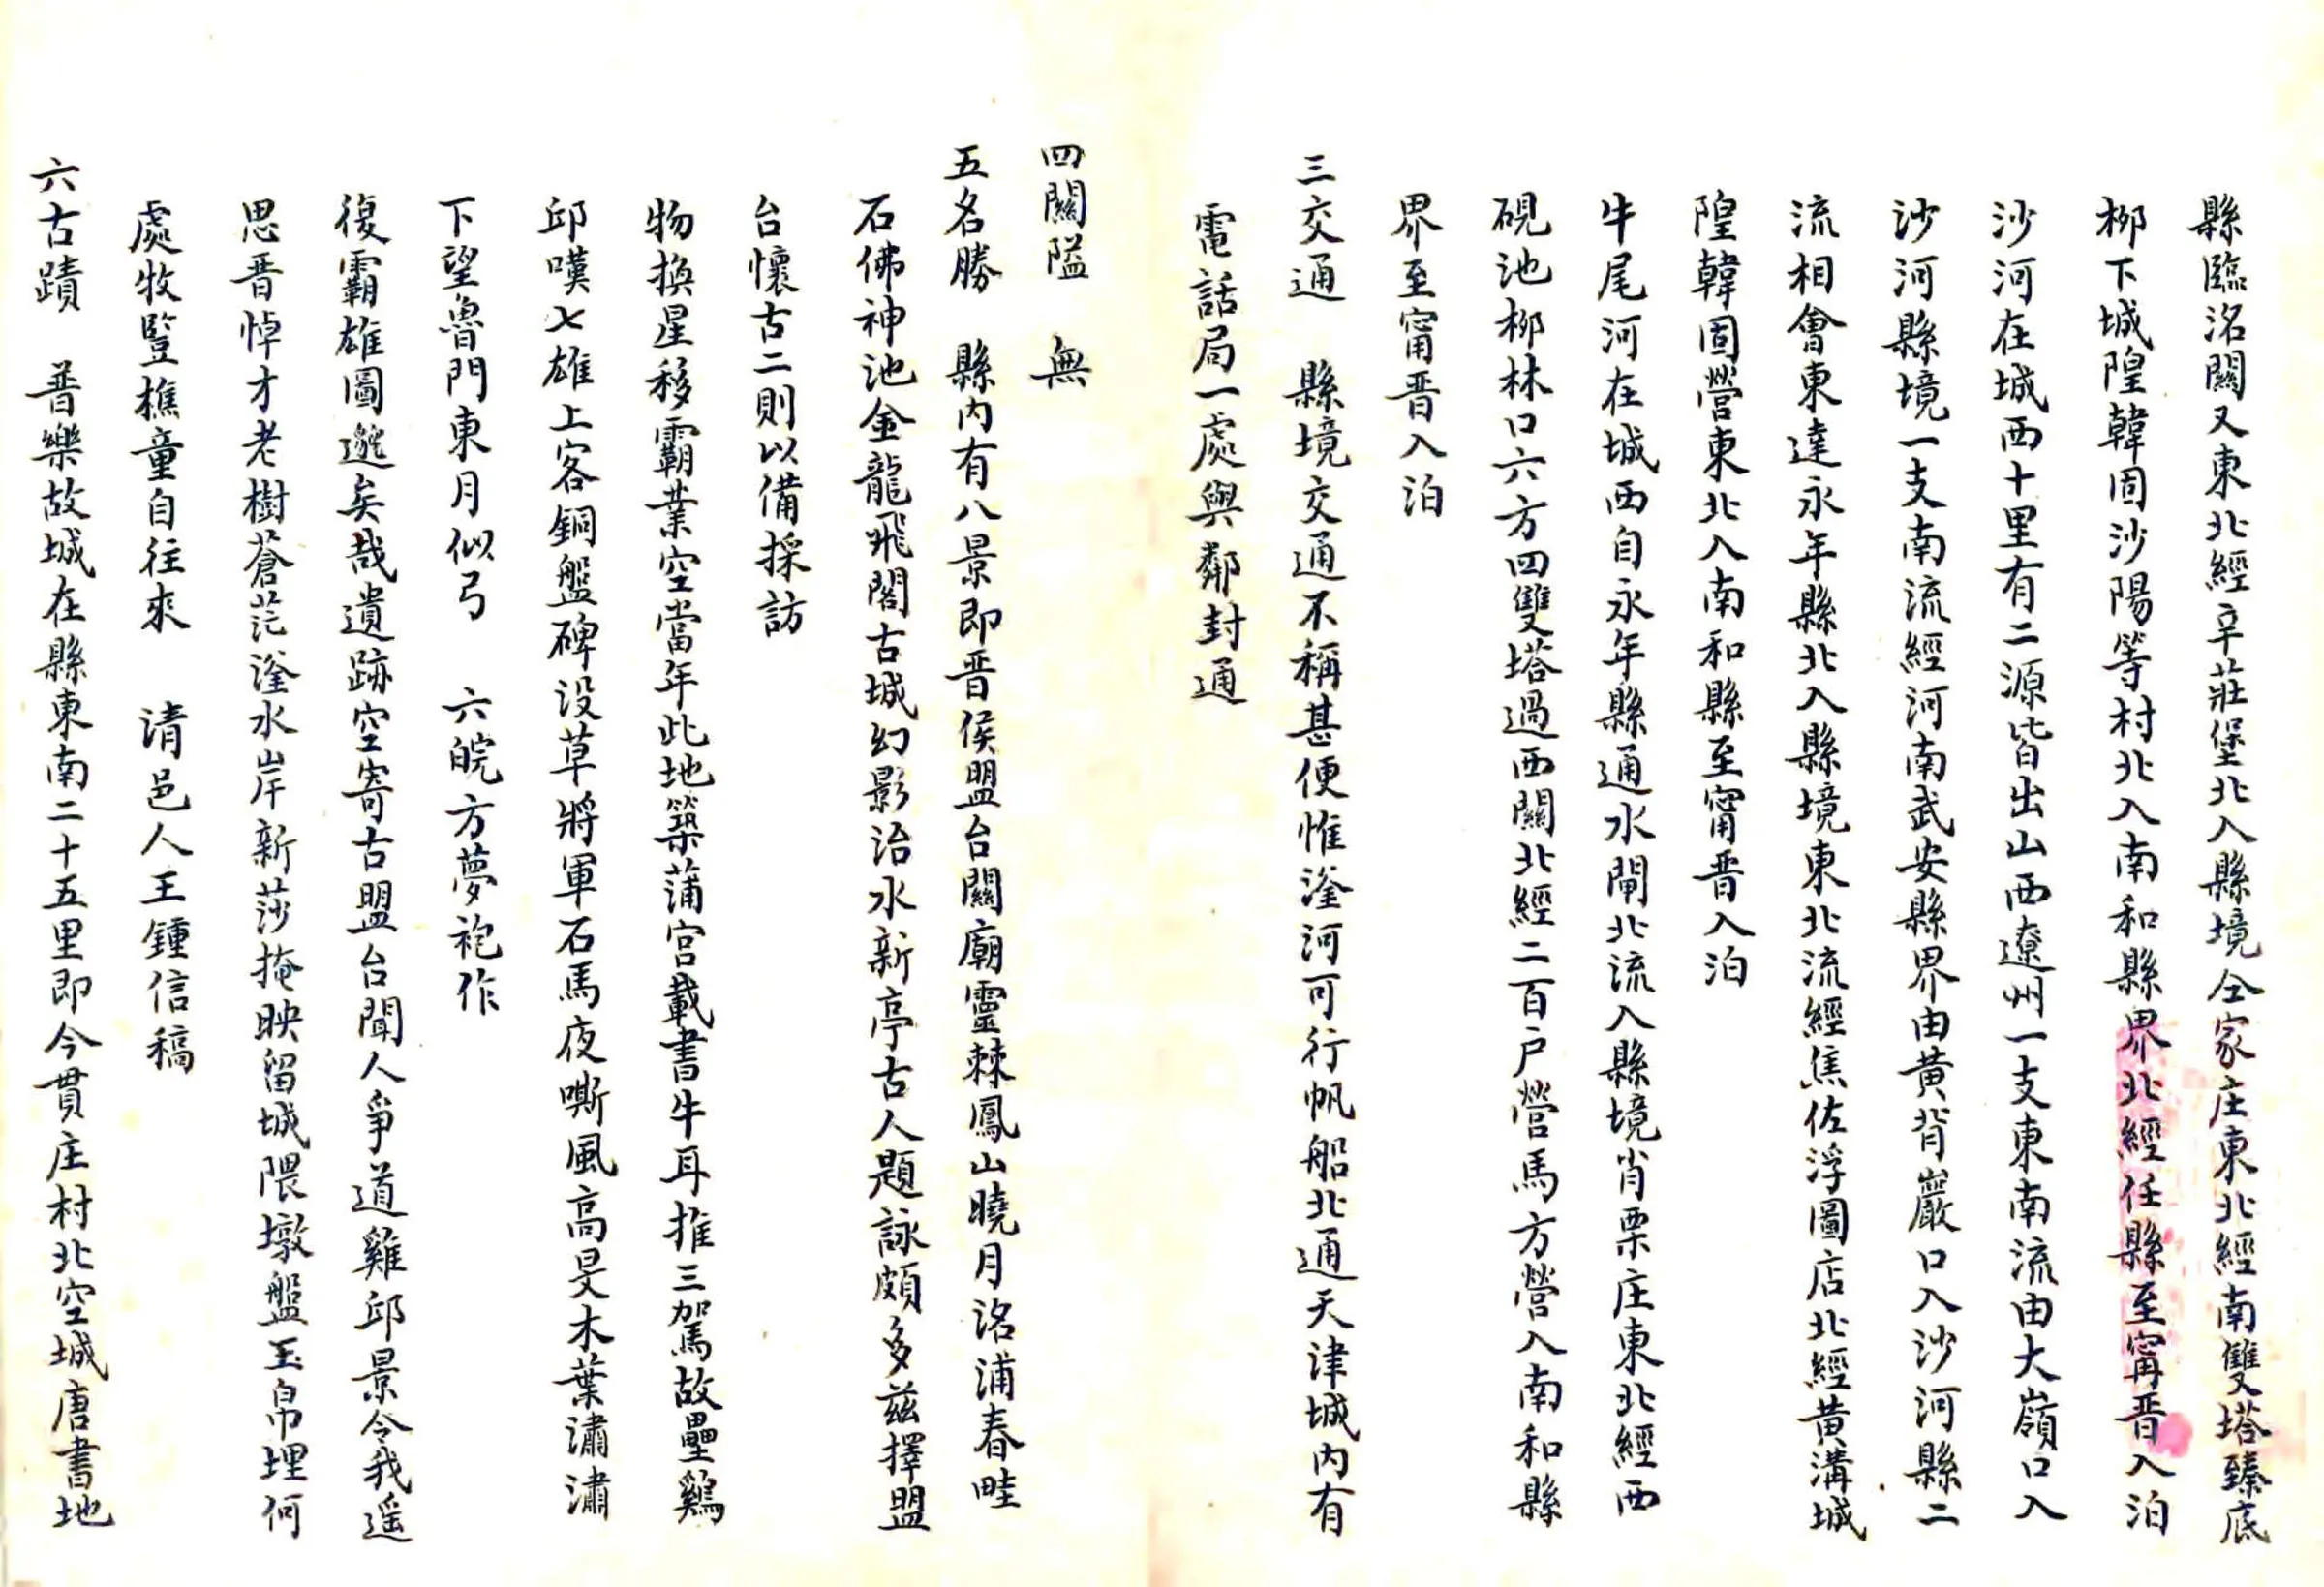 縣臨洺關又東北經辛莊堡北入縣境仝家庄東北經南雙塔臻底
栁下城隍韓固沙陽等村北入南和縣界北經任縣至甯晋入泊
沙河在城西十里有二源皆出山西遼州一支東南流由大嶺口入
沙河縣境一支南流經河南武安縣界由黄背巖口入沙河縣二
流相會東達永年縣北入縣境東北流經焦佐浮圖店北經黄溝城
隍韓固營東北入南和縣至甯晋入泊
牛尾河在城西自永年縣通水閘北流入縣境肖栗庄東北經西
硯池栁林口六方四雙塔過西關北經二百户營馬方營入南和縣
界至甯晋入泊
三交通 縣境交通不稱甚便惟滏河可行帆船北通天津城内有
電話局一處與鄰封通
四關隘 無
五名勝 縣内有八景即晋侯盟台關廟靈棘鳳山曉月洺浦春畦
石佛神池金龍飛閣古城幻影治水新亭古人題詠頗多兹擇盟
台懷古二則以備採訪
物換星移霸業空當年此地築蒲宫載書牛耳推三駕故壘鷄
邱嘆七雄上客銅盤碑没草將軍石馬夜嘶風高旻木葉瀟瀟
下望魯門東月似弓 六皖方夢袍作
復霸雄圖邈矣哉遺跡空寄古盟台聞人爭道雞邱景令我遥
思晋悼才老樹蒼茫滏水岸新莎掩映留城隈墩盤玉帛埋何
處牧豎樵童自往來 清邑人王鍾信稿
六古蹟 普樂故城在縣東南二十五里即今貫庄村北空城唐書地